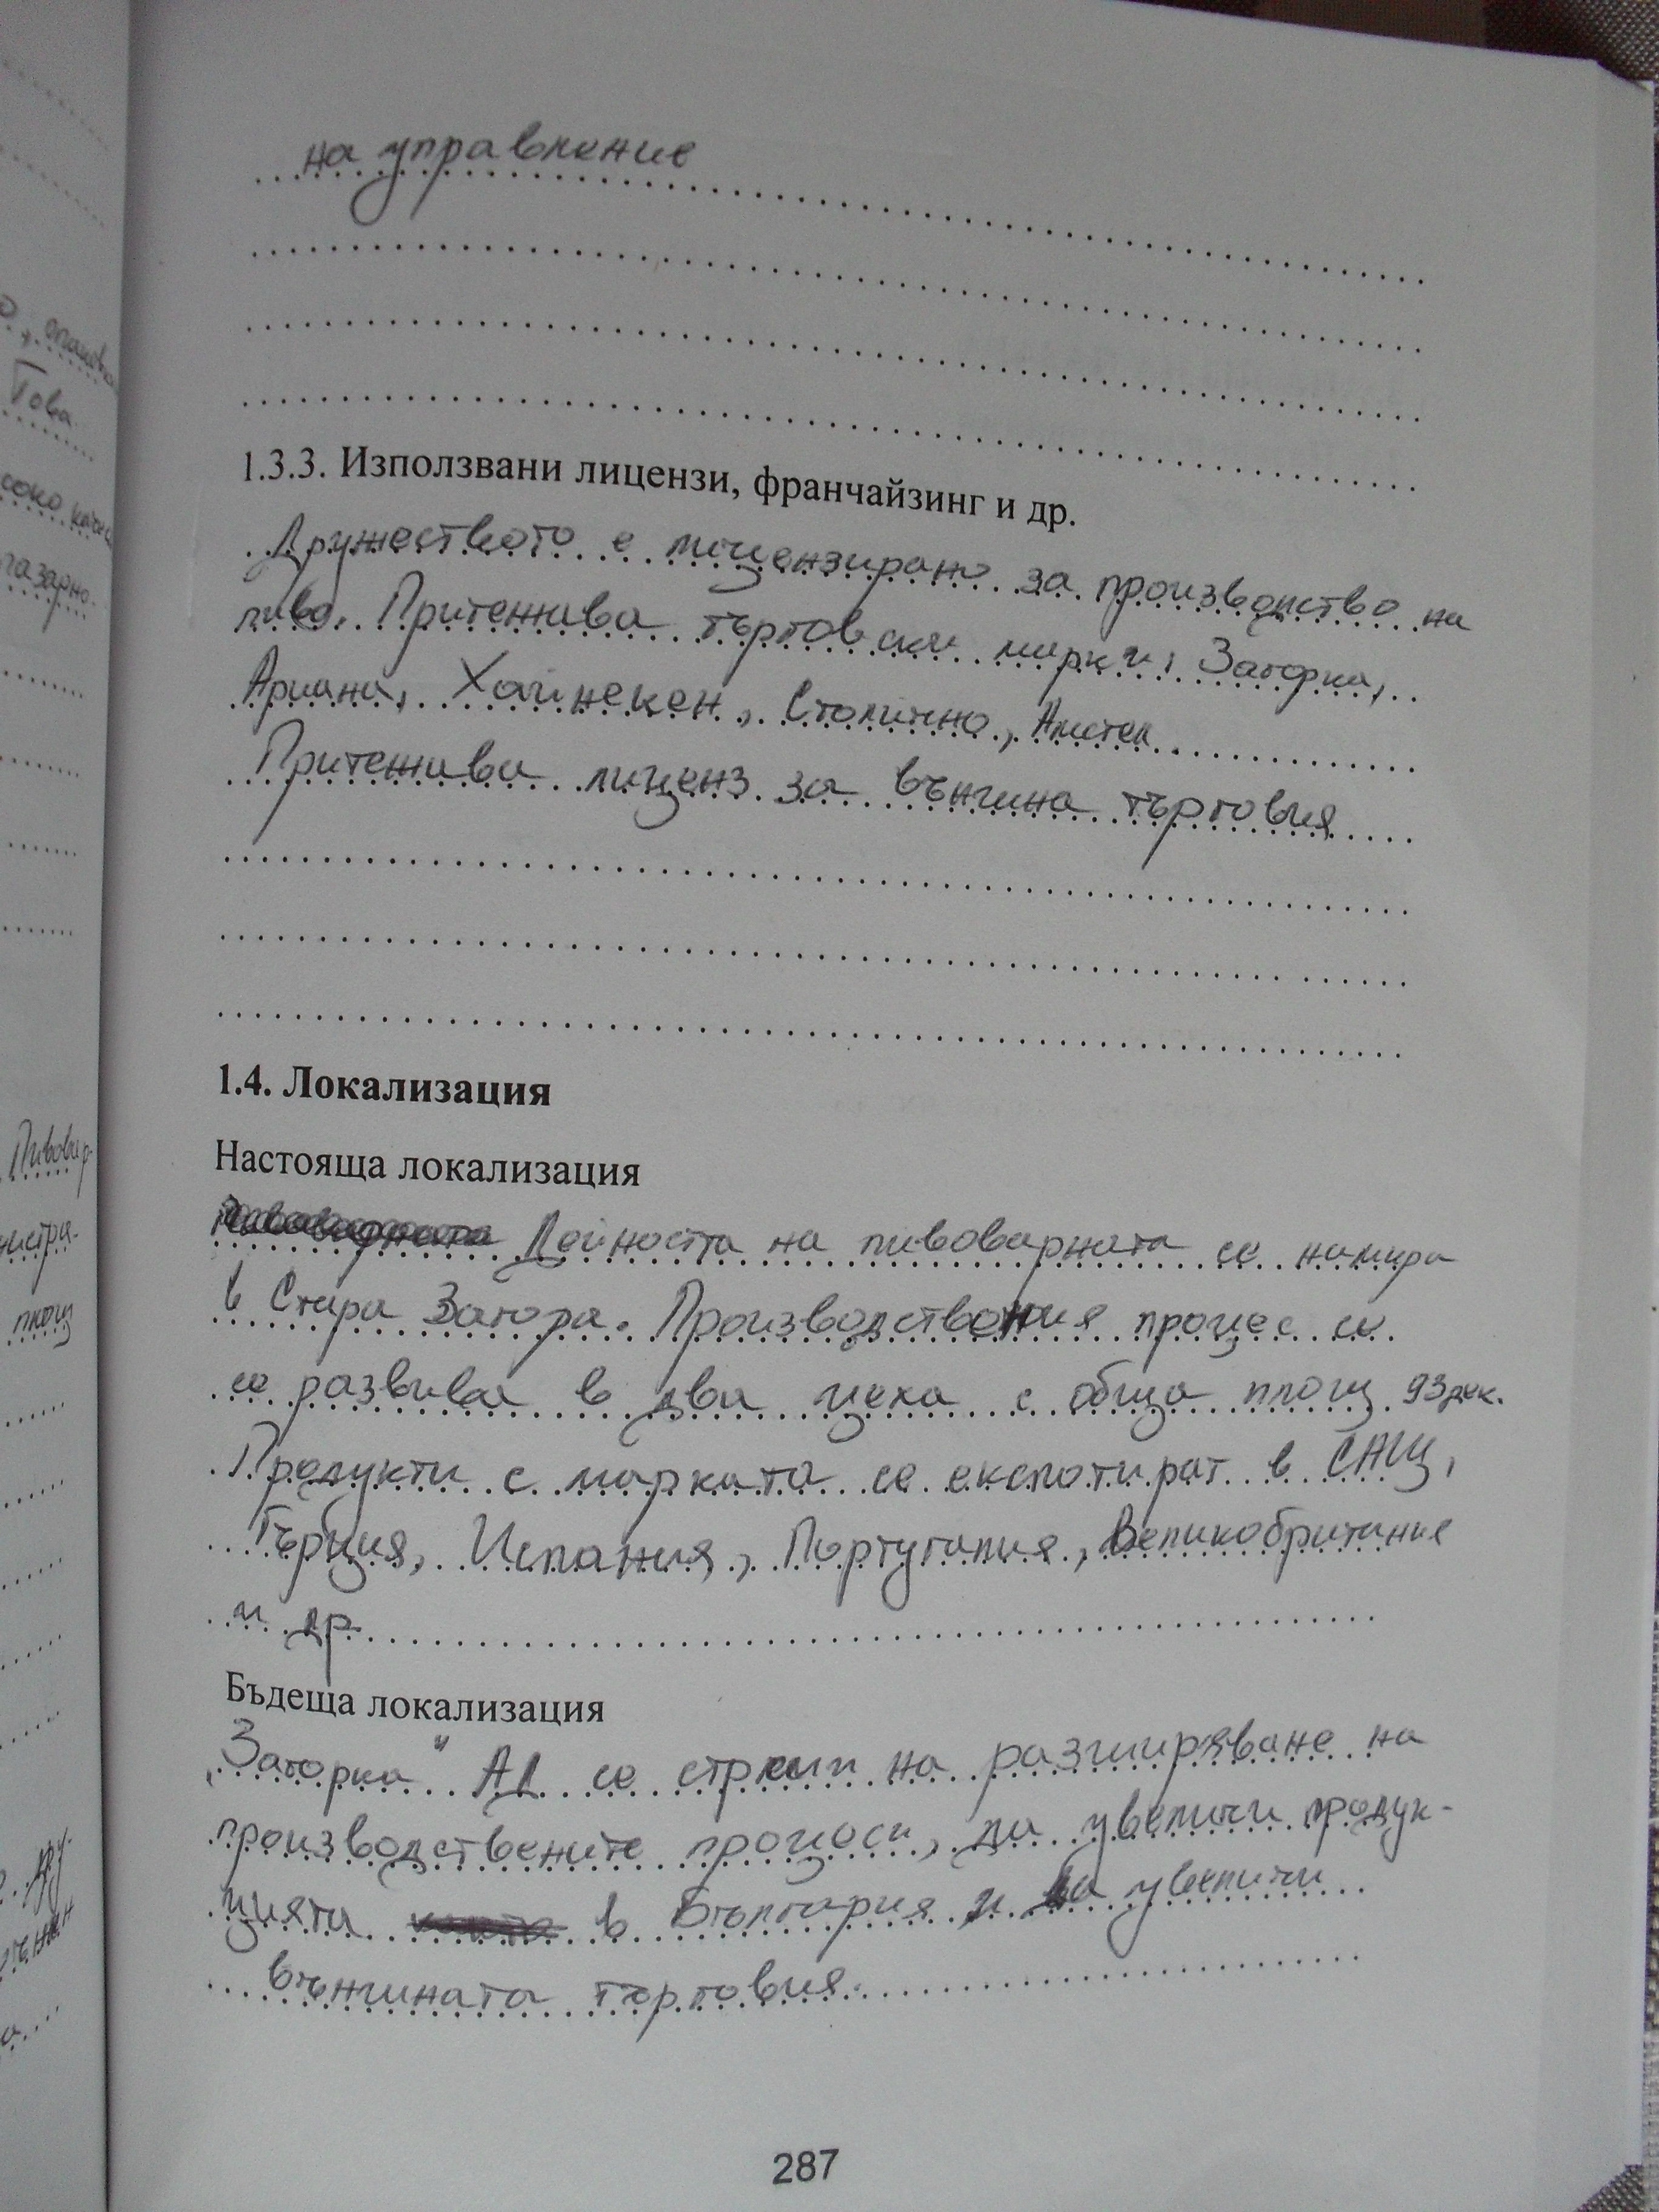 на управление
1.3.3. Използвани лицензи, франчайзинг и др.
Дружеството е лицензирано за производство на
пиво. Притежава търговски марки: Загорка,
Ариана, Хайнекен, Столично, Амстел
Притежава лиценз за външна търговия
1.4. Локализация
Настояща локализация
Дейността на пивоварната се намира
в Стара Загора. Производствения процес се
се развива в два цеха с обща площ 93 дек.
Продукти с марката се експотират в САЩ,
Гърция, Испания, Португалия, Великобритания
и др.
Бъдеща локализация
„Загорка" АД се стреми на разширяване на
производствените процеси, да увеличи продук-
цията в България и да увеличи
външната търговия.
287
Това
Пивовар-
площ